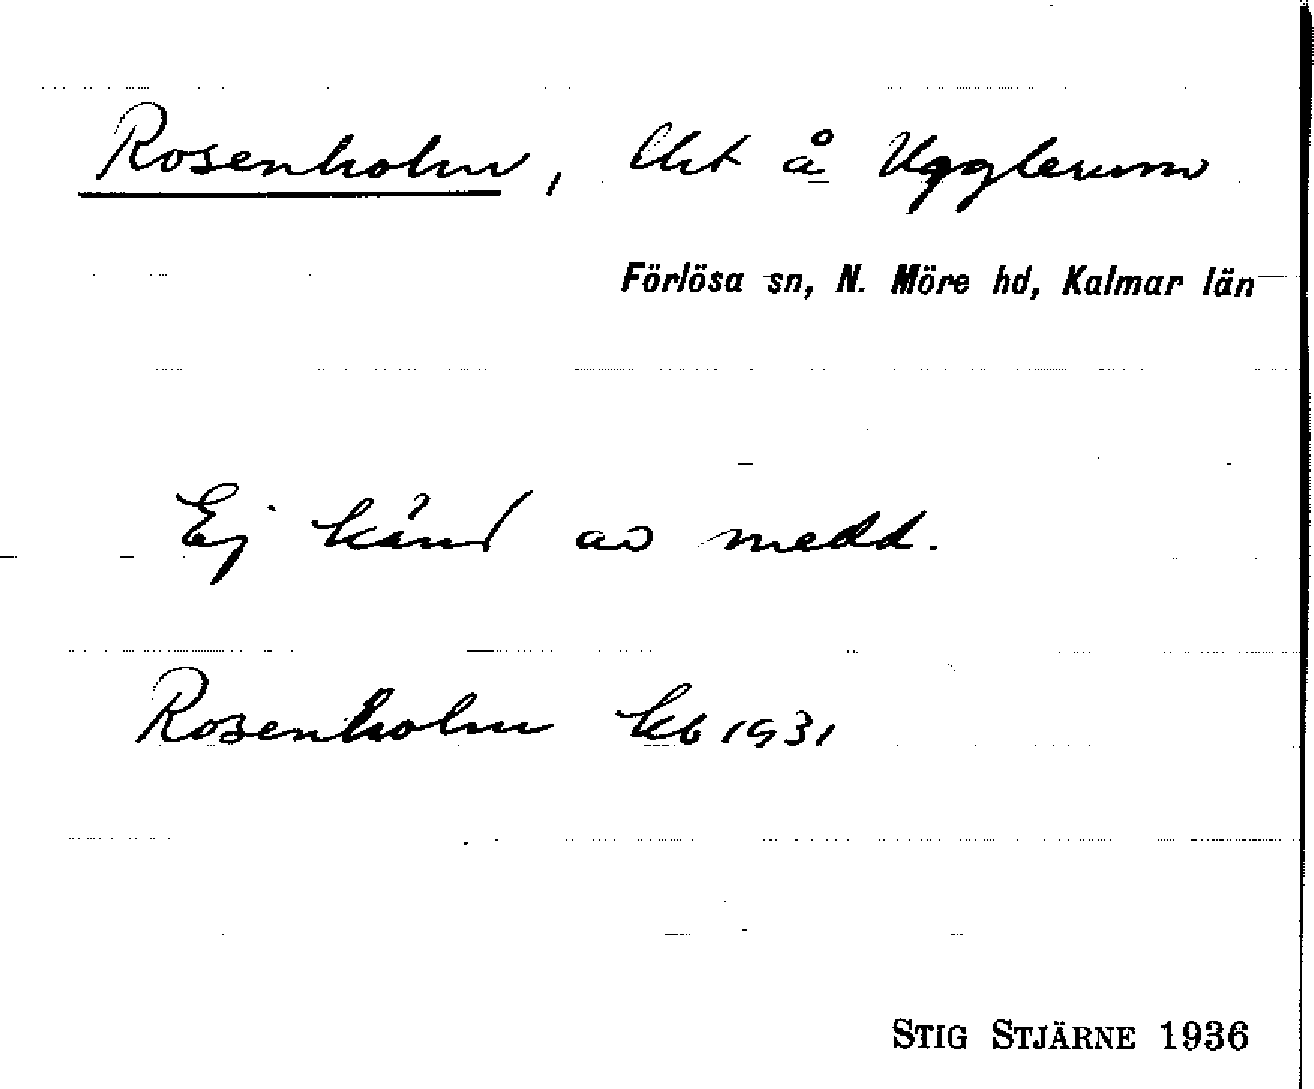 Rosenholm, Utt å Ugglerum
Förlösa sn, N. Möre hd, Kalmar län
Ej känd av medd.
Rosenholm kb 1931
STIG STJÄRNE 1936